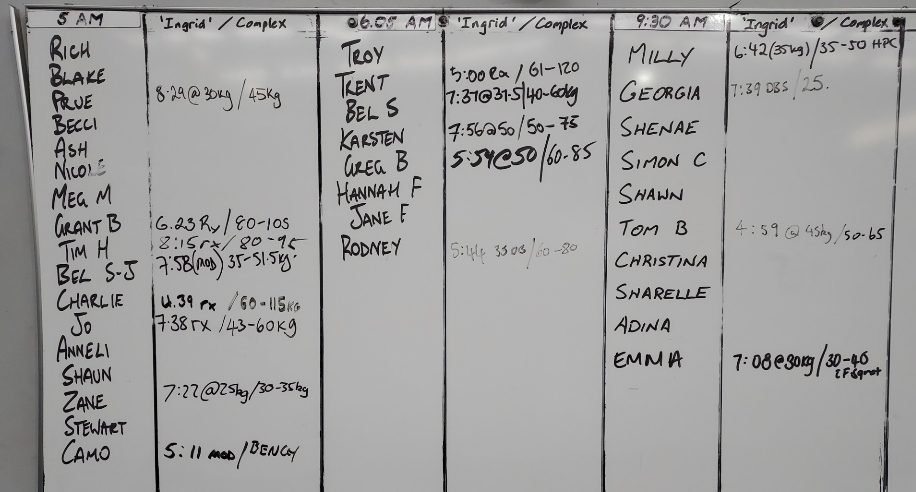 5 AM 'Ingrid' / Complex
RICH
BLAKE
PRUE 8:29@30kg / 45kg
BECCI
ASH
NICOLE
MEG M
GRANT B 6.23 Rx / 80-105
TIM H 8:15 rx / 80-95
BEL S-J 7:58(mod) 35-51.5kg
CHARLIE 4.39 rx / 60-115KG
JO 7:38 rx / 43-60kg
ANNELI
SHAUN
ZANE 7:22@25kg/30-35kg
STEWART
CAMO 5:11 MOD / BENCH
6.05 AM 'Ingrid' / Complex
TROY
TRENT 5:00 Rx / 61-120
BEL S 7:37@37.5/40-60kg
KARSTEN 7:56@50/50-75
GREG B 5:54@50/60-85
HANNAH F
JANE F
RODNEY 5:44 / 60-80
9:30 AM 'Ingrid' / Complex
MILLY 6:42(35kg)/35-50 HPC
GEORGIA 7:39 DBS / 25.
SHENAE
SIMON C
SHAWN
TOM B 4:59 @ 45kg/50-65
CHRISTINA
SHARELLE
ADINA
EMMA 7:08@30kg/30-40
2F Squat